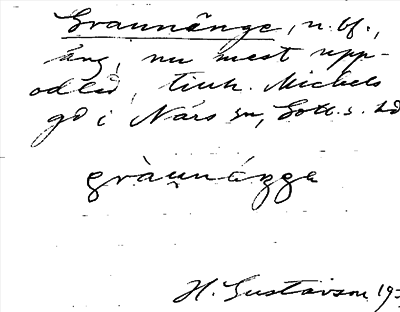 Graunänge, n. bf.,
äng, nu mest upp-
odlad, tillh. Michels
gd i Närs sn, Gotl. s. hd
gràunǽŋgε
H. Gustavson 19